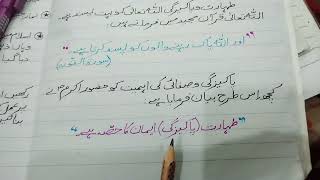 طہارت و پاکیزگی اللہ تعالیٰ کو پسند ہے
اللہ تعالیٰ قرآن مجید میں فرماتے ہیں
"اور اللہ پاک رہنے والوں کو پسند کرتا ہے"
پاکیزگی و صفائی کی اہمیت کو حضور اکرمؐ نے
کچھ اس طرح بیان فرمایا ہے
"طہارت (پاکیزگی) ایمان کا حصہ ہے"